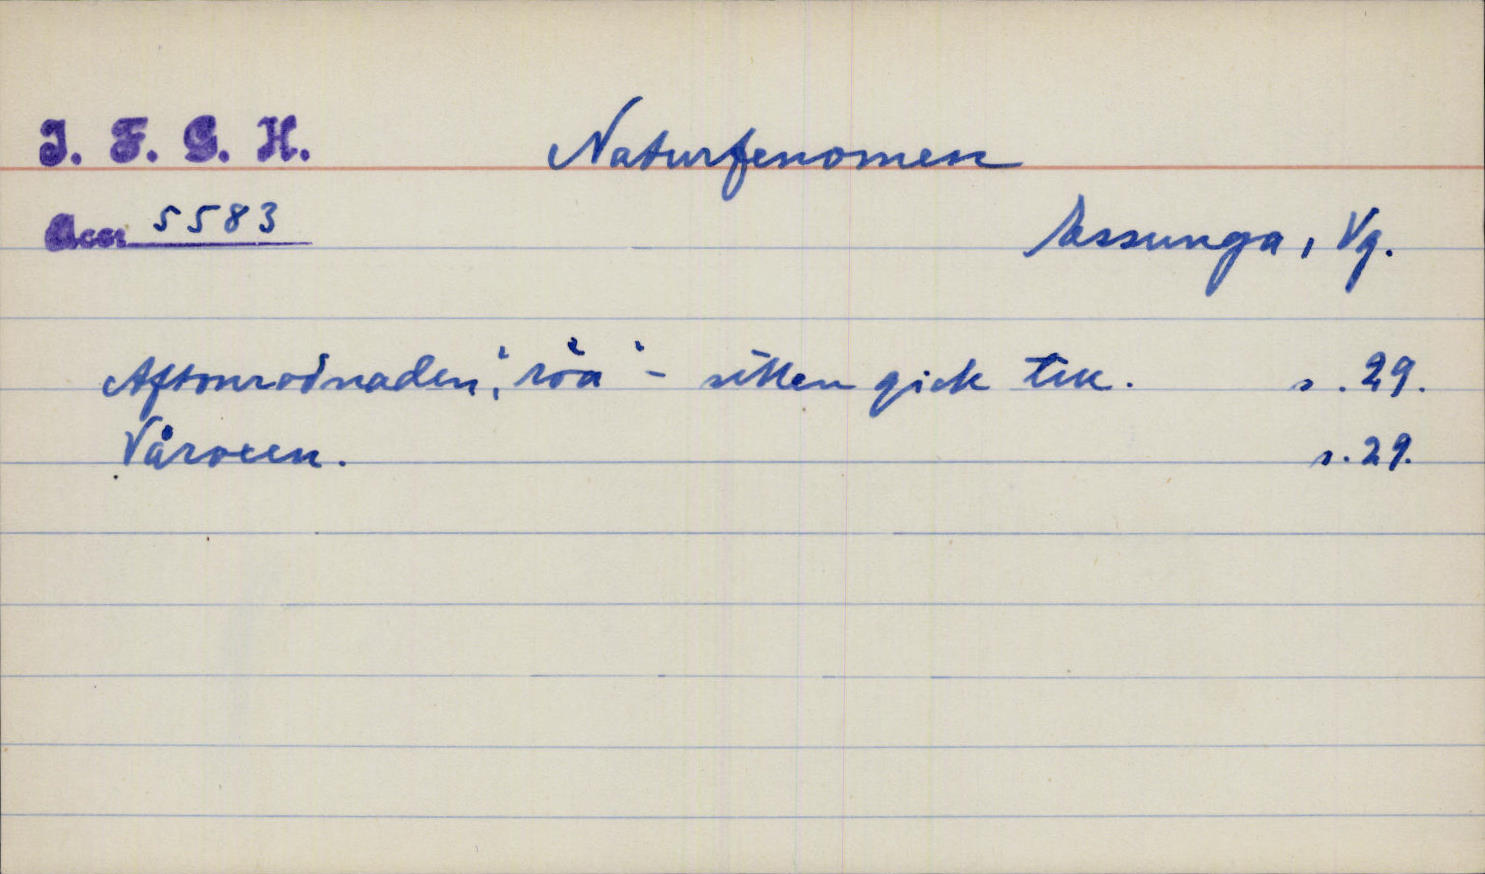 I. F. G. H. Naturfenomen
Accnr 5583
Essunga, Vg.
Aftonrodnaden, "röa" - gick s. 29.
Våroxen. s. 29.